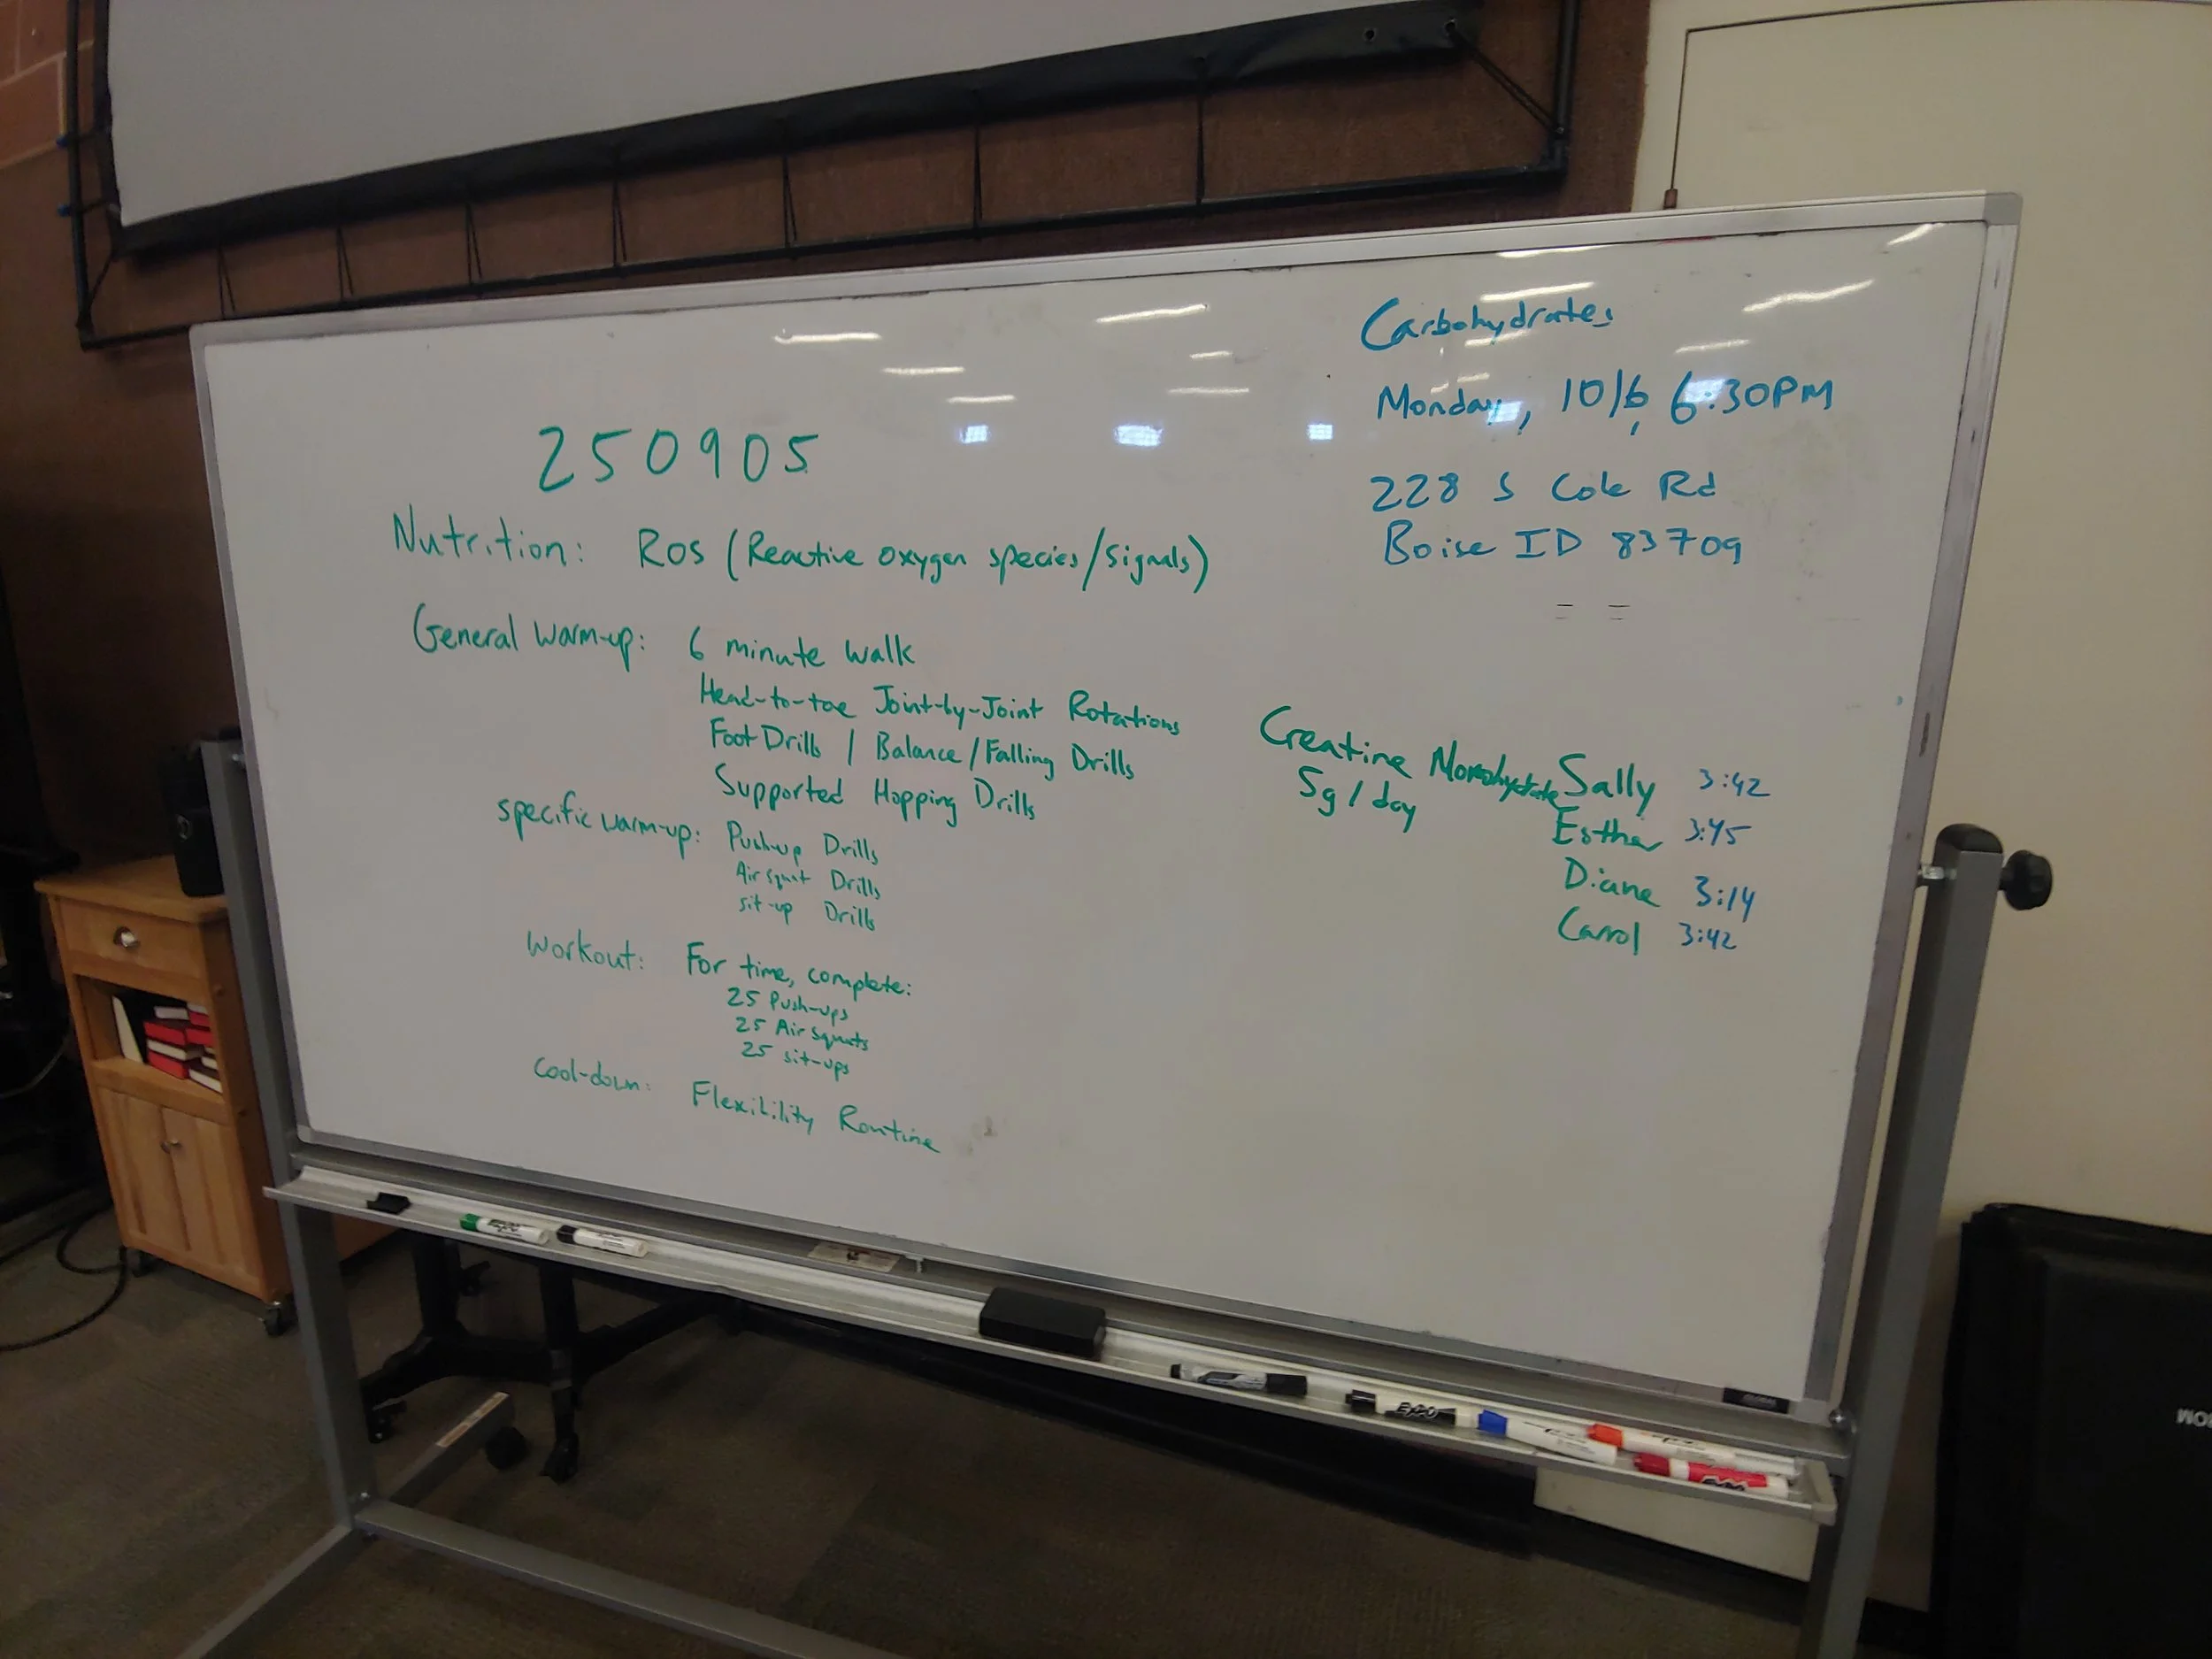 250905
Nutrition: ROS (Reactive oxygen species/signals)
General warm-up: 6 minute walk
Head-to-toe Joint-by-Joint Rotations
Foot Drills / Balance/Falling Drills
Supported Hopping Drills
specific warm-up: Push-up Drills
Air squat Drills
sit-up Drills
Workout: For time, complete:
25 Push-ups
25 Air squats
25 sit-ups
Cool-down: Flexibility Routine
Carbohydrates
Monday, 10/6, 6:30PM
228 S Cole Rd
Boise ID 83709
Creatine Monohydrate
5g/day
Sally 3:42
Esther 3:45
Diane 3:14
Carol 3:42
EXPO